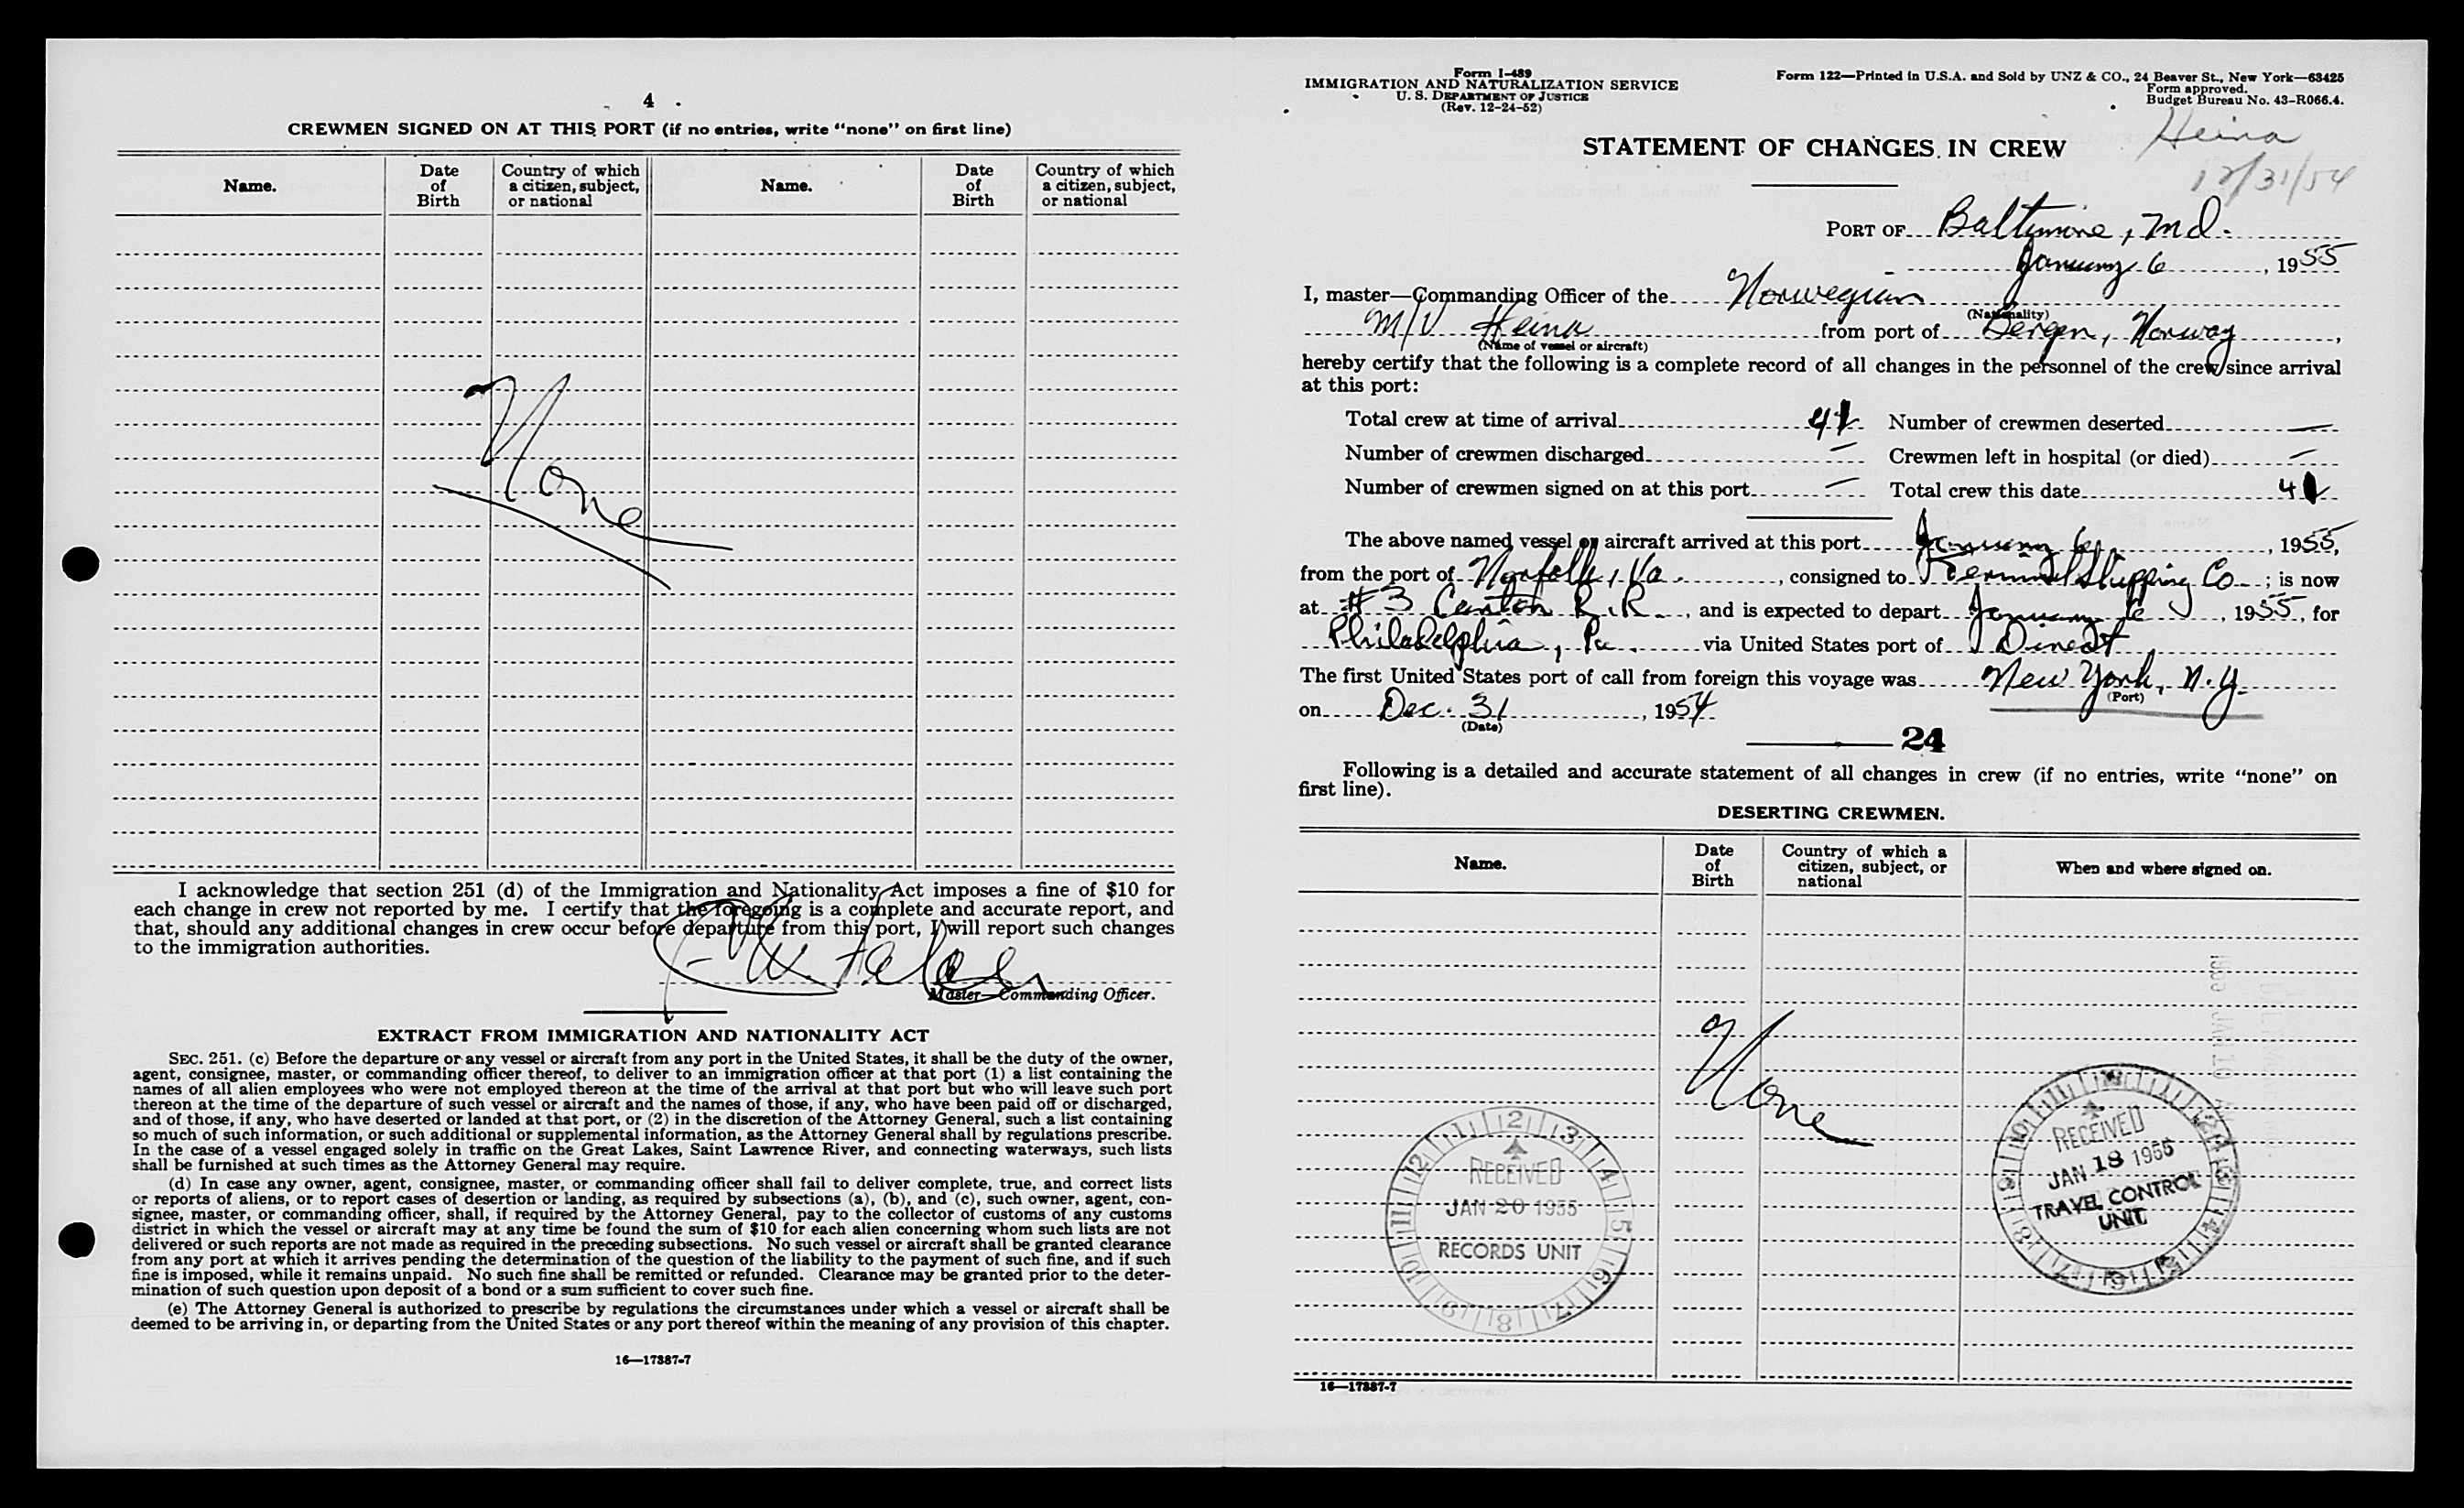 4
CREWMEN SIGNED ON AT THIS PORT (if no entries, write "none" on first line)
Name. Date of Birth Country of which a citizen, subject, or national Name. Date of Birth Country of which a citizen, subject, or national
None
I acknowledge that section 251 (d) of the Immigration and Nationality Act imposes a fine of $10 for
each change in crew not reported by me. I certify that the foregoing is a complete and accurate report, and
that, should any additional changes in crew occur before departure from this port, I will report such changes
to the immigration authorities.
Master—Commanding Officer.
EXTRACT FROM IMMIGRATION AND NATIONALITY ACT
SEC. 251. (c) Before the departure or any vessel or aircraft from any port in the United States, it shall be the duty of the owner,
agent, consignee, master, or commanding officer thereof, to deliver to an immigration officer at that port (1) a list containing the
names of all alien employees who were not employed thereon at the time of the arrival at that port but who will leave such port
thereon at the time of the departure of such vessel or aircraft and the names of those, if any, who have been paid off or discharged,
and of those, if any, who have deserted or landed at that port, or (2) in the discretion of the Attorney General, such a list containing
so much of such information, or such additional or supplemental information, as the Attorney General shall by regulations prescribe.
In the case of a vessel engaged solely in traffic on the Great Lakes, Saint Lawrence River, and connecting waterways, such lists
shall be furnished at such times as the Attorney General may require.
(d) In case any owner, agent, consignee, master, or commanding officer shall fail to deliver complete, true, and correct lists
or reports of aliens, or to report cases of desertion or landing, as required by subsections (a), (b), and (c), such owner, agent, con-
signee, master, or commanding officer, shall, if required by the Attorney General, pay to the collector of customs of any customs
district in which the vessel or aircraft may at any time be found the sum of $10 for each alien concerning whom such lists are not
delivered or such reports are not made as required in the preceding subsections. No such vessel or aircraft shall be granted clearance
from any port at which it arrives pending the determination of the question of the liability to the payment of such fine, and if such
fine is imposed, while it remains unpaid. No such fine shall be remitted or refunded. Clearance may be granted prior to the deter-
mination of such question upon deposit of a bond or a sum sufficient to cover such fine.
(e) The Attorney General is authorized to prescribe by regulations the circumstances under which a vessel or aircraft shall be
deemed to be arriving in, or departing from the United States or any port thereof within the meaning of any provision of this chapter.
16—17387-7
Form I-489
IMMIGRATION AND NATURALIZATION SERVICE
U. S. DEPARTMENT OF JUSTICE
(Rev. 12-24-52)
Form 122—Printed in U.S.A. and Sold by UNZ & CO., 24 Beaver St., New York—63425
Form approved.
Budget Bureau No. 43-R066.4.
Heina
12/31/54
STATEMENT OF CHANGES IN CREW
PORT OF Baltimore, Md.
January 6, 1955
I, master—Commanding Officer of the Norwegian
(Nationality)
M/V Heina from port of Bergen, Norway,
(Name of vessel or aircraft)
hereby certify that the following is a complete record of all changes in the personnel of the crew since arrival
at this port:
Total crew at time of arrival Number of crewmen deserted —
Number of crewmen discharged — Crewmen left in hospital (or died) —
Number of crewmen signed on at this port — Total crew this date
The above named vessel or aircraft arrived at this port January 6, 1955,
from the port of Norfolk, Va., consigned to Terminal Shipping Co; is now
at #3 Canton R.R., and is expected to depart January 6, 1955, for
Philadelphia, Pa. via United States port of Direct
The first United States port of call from foreign this voyage was New York, N.Y.
(Port)
on Dec. 31, 1954
(Date)
24
Following is a detailed and accurate statement of all changes in crew (if no entries, write "none" on
first line).
DESERTING CREWMEN.
Name. Date of Birth Country of which a citizen, subject, or national When and where signed on.
None
RECEIVED
JAN 20 1955
RECORDS UNIT
RECEIVED
JAN 18 1955
TRAVEL CONTROL
UNIT
16—17387-7